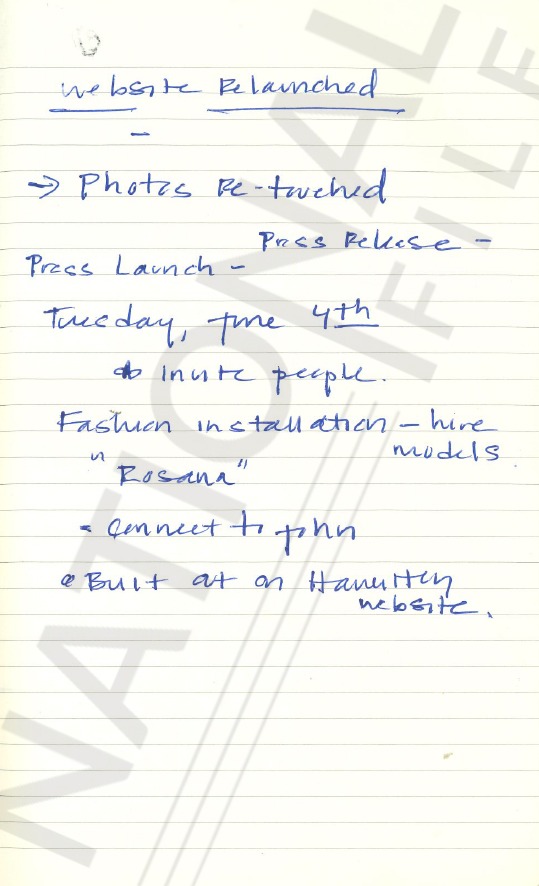 website Relaunched
–
→ Photos Re-touched
Press Release –
Press Launch –
Tuesday, June 4th
invite people.
Fashion installation – hire
models
"Rosana"
- connect to John
• Built at on
website.
NATIONAL
FILE